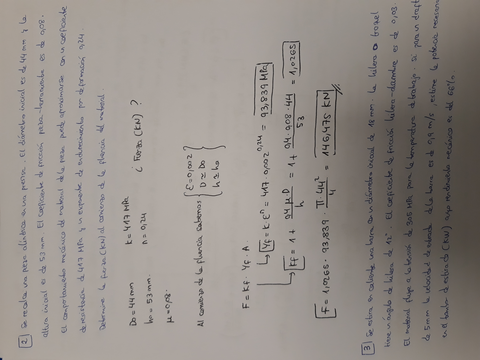 2 Se recalca una pieza cilíndrica en una prensa. El diámetro inicial es de 44 mm y la
altura inicial es de 53 mm. El coeficiente de fricción pieza-herramienta es de 0,08.
El comportamiento mecánico del material de la pieza puede aproximarse con un coeficiente
de resistencia de 417 MPa y un exponente de endurecimiento por deformación 0,24.
Determine la fuerza (KN) al comienzo de la fluencia del material
D0 = 44 mm
h0 = 53 mm.
μ = 0,08.
K = 417 MPa
n = 0,24
¿ Fuerza (KN) ?
Al comienzo de la fluencia sabemos { ε = 0,002
D ≈ D0
h ≈ h0 }
F = Kf · Yf · A
Yf = K · ε^n = 417 · 0,002^0,24 = 93,839 MPa
Kf = 1 + 0,4 · μ · D / h = 1 + 0,4 · 0,08 · 44 / 53 = 1,0265
F = 1,0265 · 93,839 · π · 44² / 4 = 146,475 KN
3 Se estira en caliente una barra con un diámetro inicial de 18 mm. La hilera
tiene un ángulo de hilera de 18°. El coeficiente de fricción hilera-alambre es de 0,03
El material fluye a tensión de 305 MPa para la temperatura de trabajo. Si para un draft
de 5 mm la velocidad de entrada de la barra es de 0,9 m/s, estime la potencia necesaria
en el tambor de estirado (KW) cuyo rendimiento mecánico es del 66%.